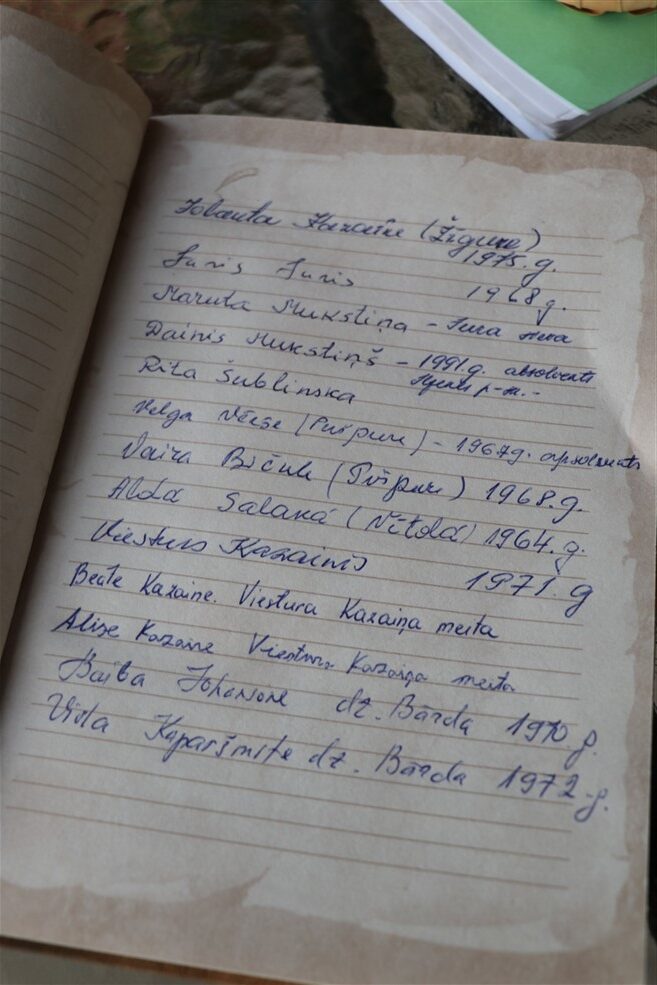 Jolanta Kazaine (Žigure)
1975. g.
Juris Juris 1968 g.
Maruta Mukstiņa - Jura
Dainis Mukstiņš - 1991 g. absolvents
Rita Šublinska
Velga (Pušpure) - 1967 g. apsolvents
Vaira Bičule (Pušpure) 1968. g.
Alda Salana (Vītola) 1964. g.
Viesturs Kazainis 1971. g
Beate Kazaine. Viestura Kazaiņa meita
Alise Kazaine Viestura Kazaiņa meita
Baiba Johansone dz. Bārda 1970 g.
Vivta dz. Bārda 1972. g.